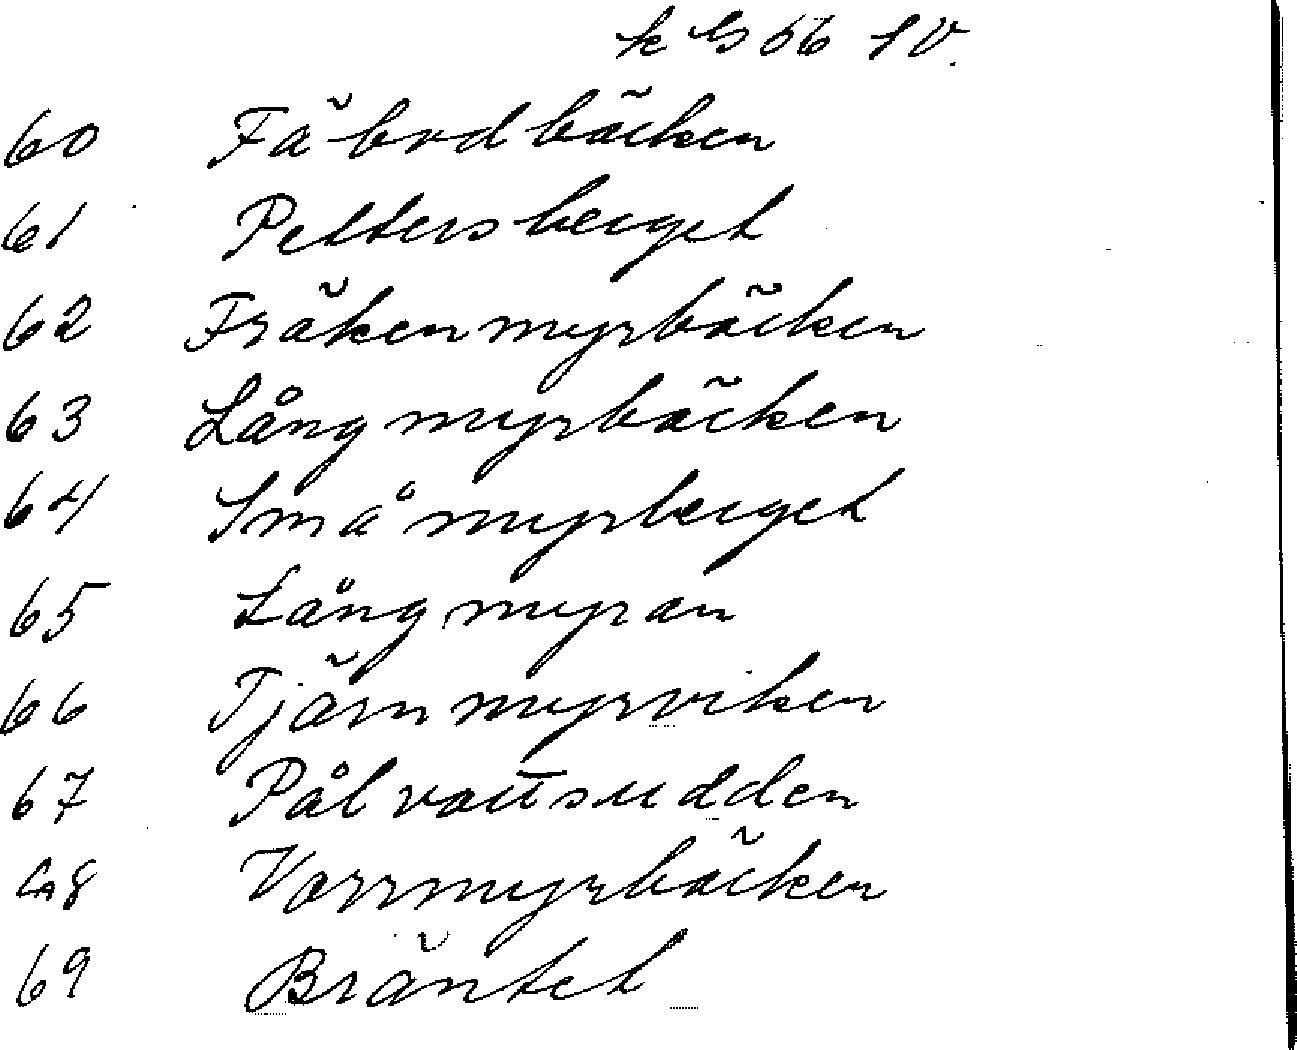 60 Fäbodbäcken
61 Pettersberget
62 Fräkenmyrbäcken
63 Långmyrbäcken
64 Småmyrberget
65 Långmyran
66 Tjärnmyrviken
67 Pålvattsudden
68 Vorrmyrbäcken
69 Bräntet